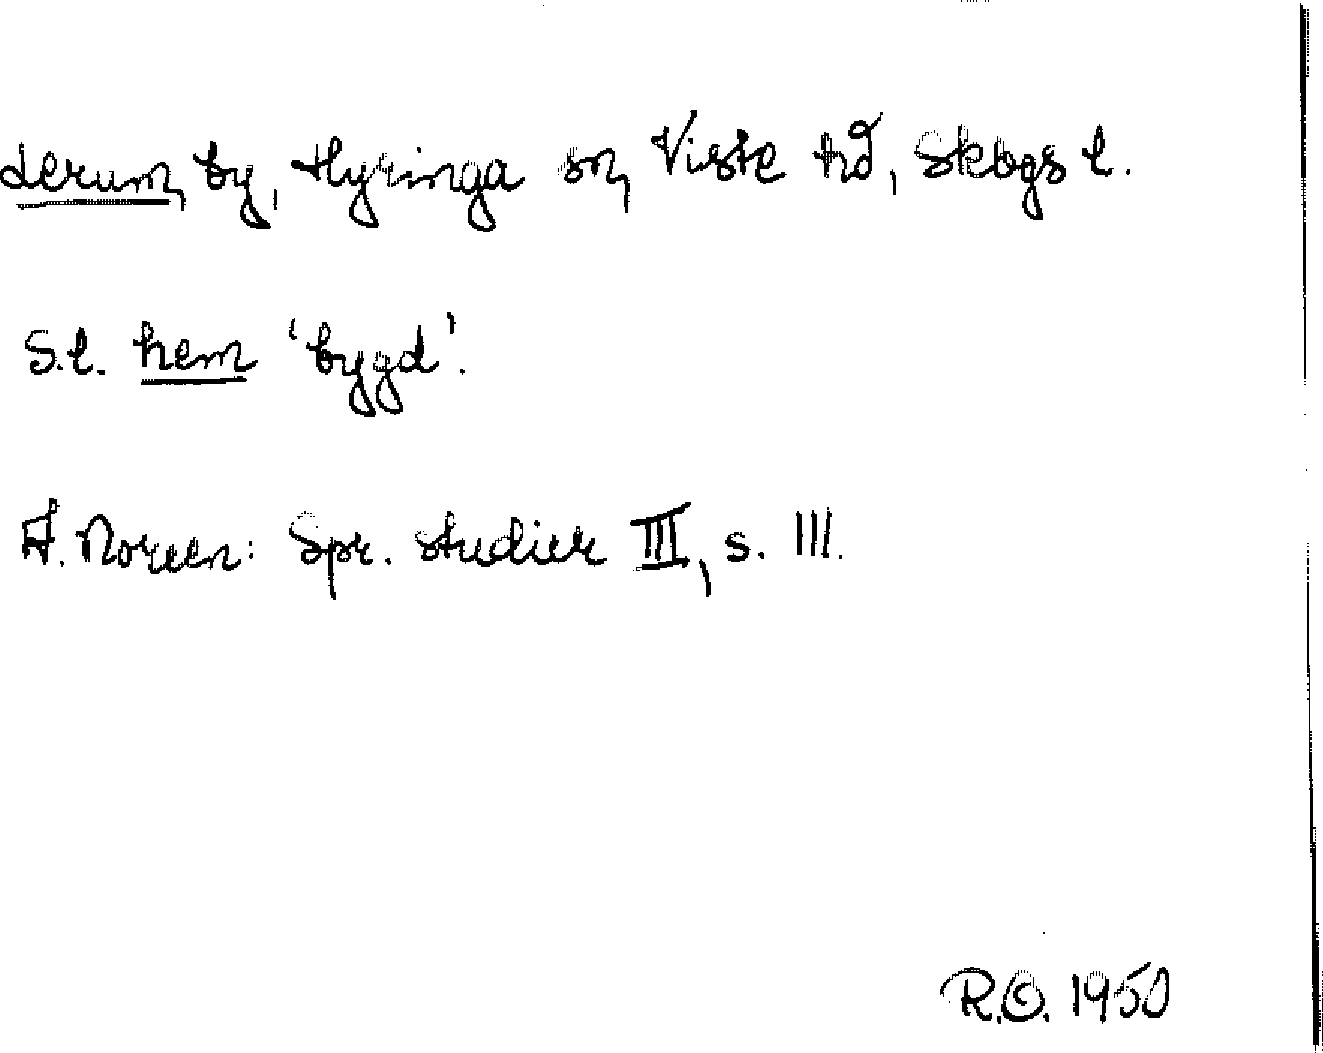 derum, by, Hyringa sn, Viste hd, Skbgs l.
S.l. hem 'bygd'.
A. Noreen: Spr. studier III, s. 111.
R.O. 1950